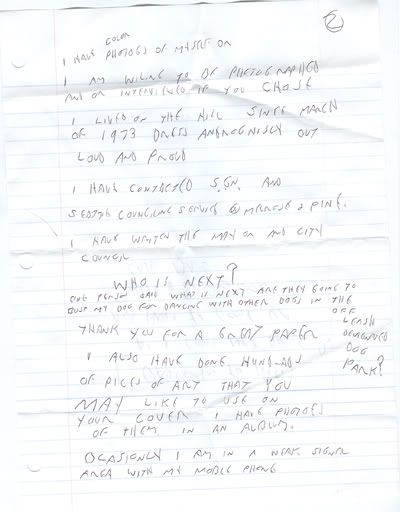 2
COLOR
I HAVE PHOTOES OF MYSELF ON
I AM WILING TO BE PHOTOGRAPHED
AND OR INTERVIEWED IF YOU CHOSE
I LIVED ON THE HILL SINCE MARCH
OF 1973 DRESS ANDROGNISLY OUT
LOUD AND PROUD
I HAVE CONTACTED S.G.N. AND
SEATTLE COUNCILING SERVICE @ MELROSE & PINE.
I HAVE WRITTEN THE MAYOR AND CITY
COUNCIL
WHO IS NEXT?
ONE PERSON SAID WHAT IS NEXT ARE THEY GOING TO
BUST MY DOG FOR DANCING WITH OTHER DOGS IN THE
OFF
LEASH
DESIGNATED
DOG
PARK?
THANK YOU FOR A GREAT PAPER
I ALSO HAVE DONE HUNDRADS
OF PICES OF ART THAT YOU
MAY LIKE TO USE ON
YOUR COVER I HAVE PHOTOES
OF THEM IN AN ALBUM.
OCASIONLY I AM IN A WEAK SIGNAL
AREA WITH MY MOBLE PHONE